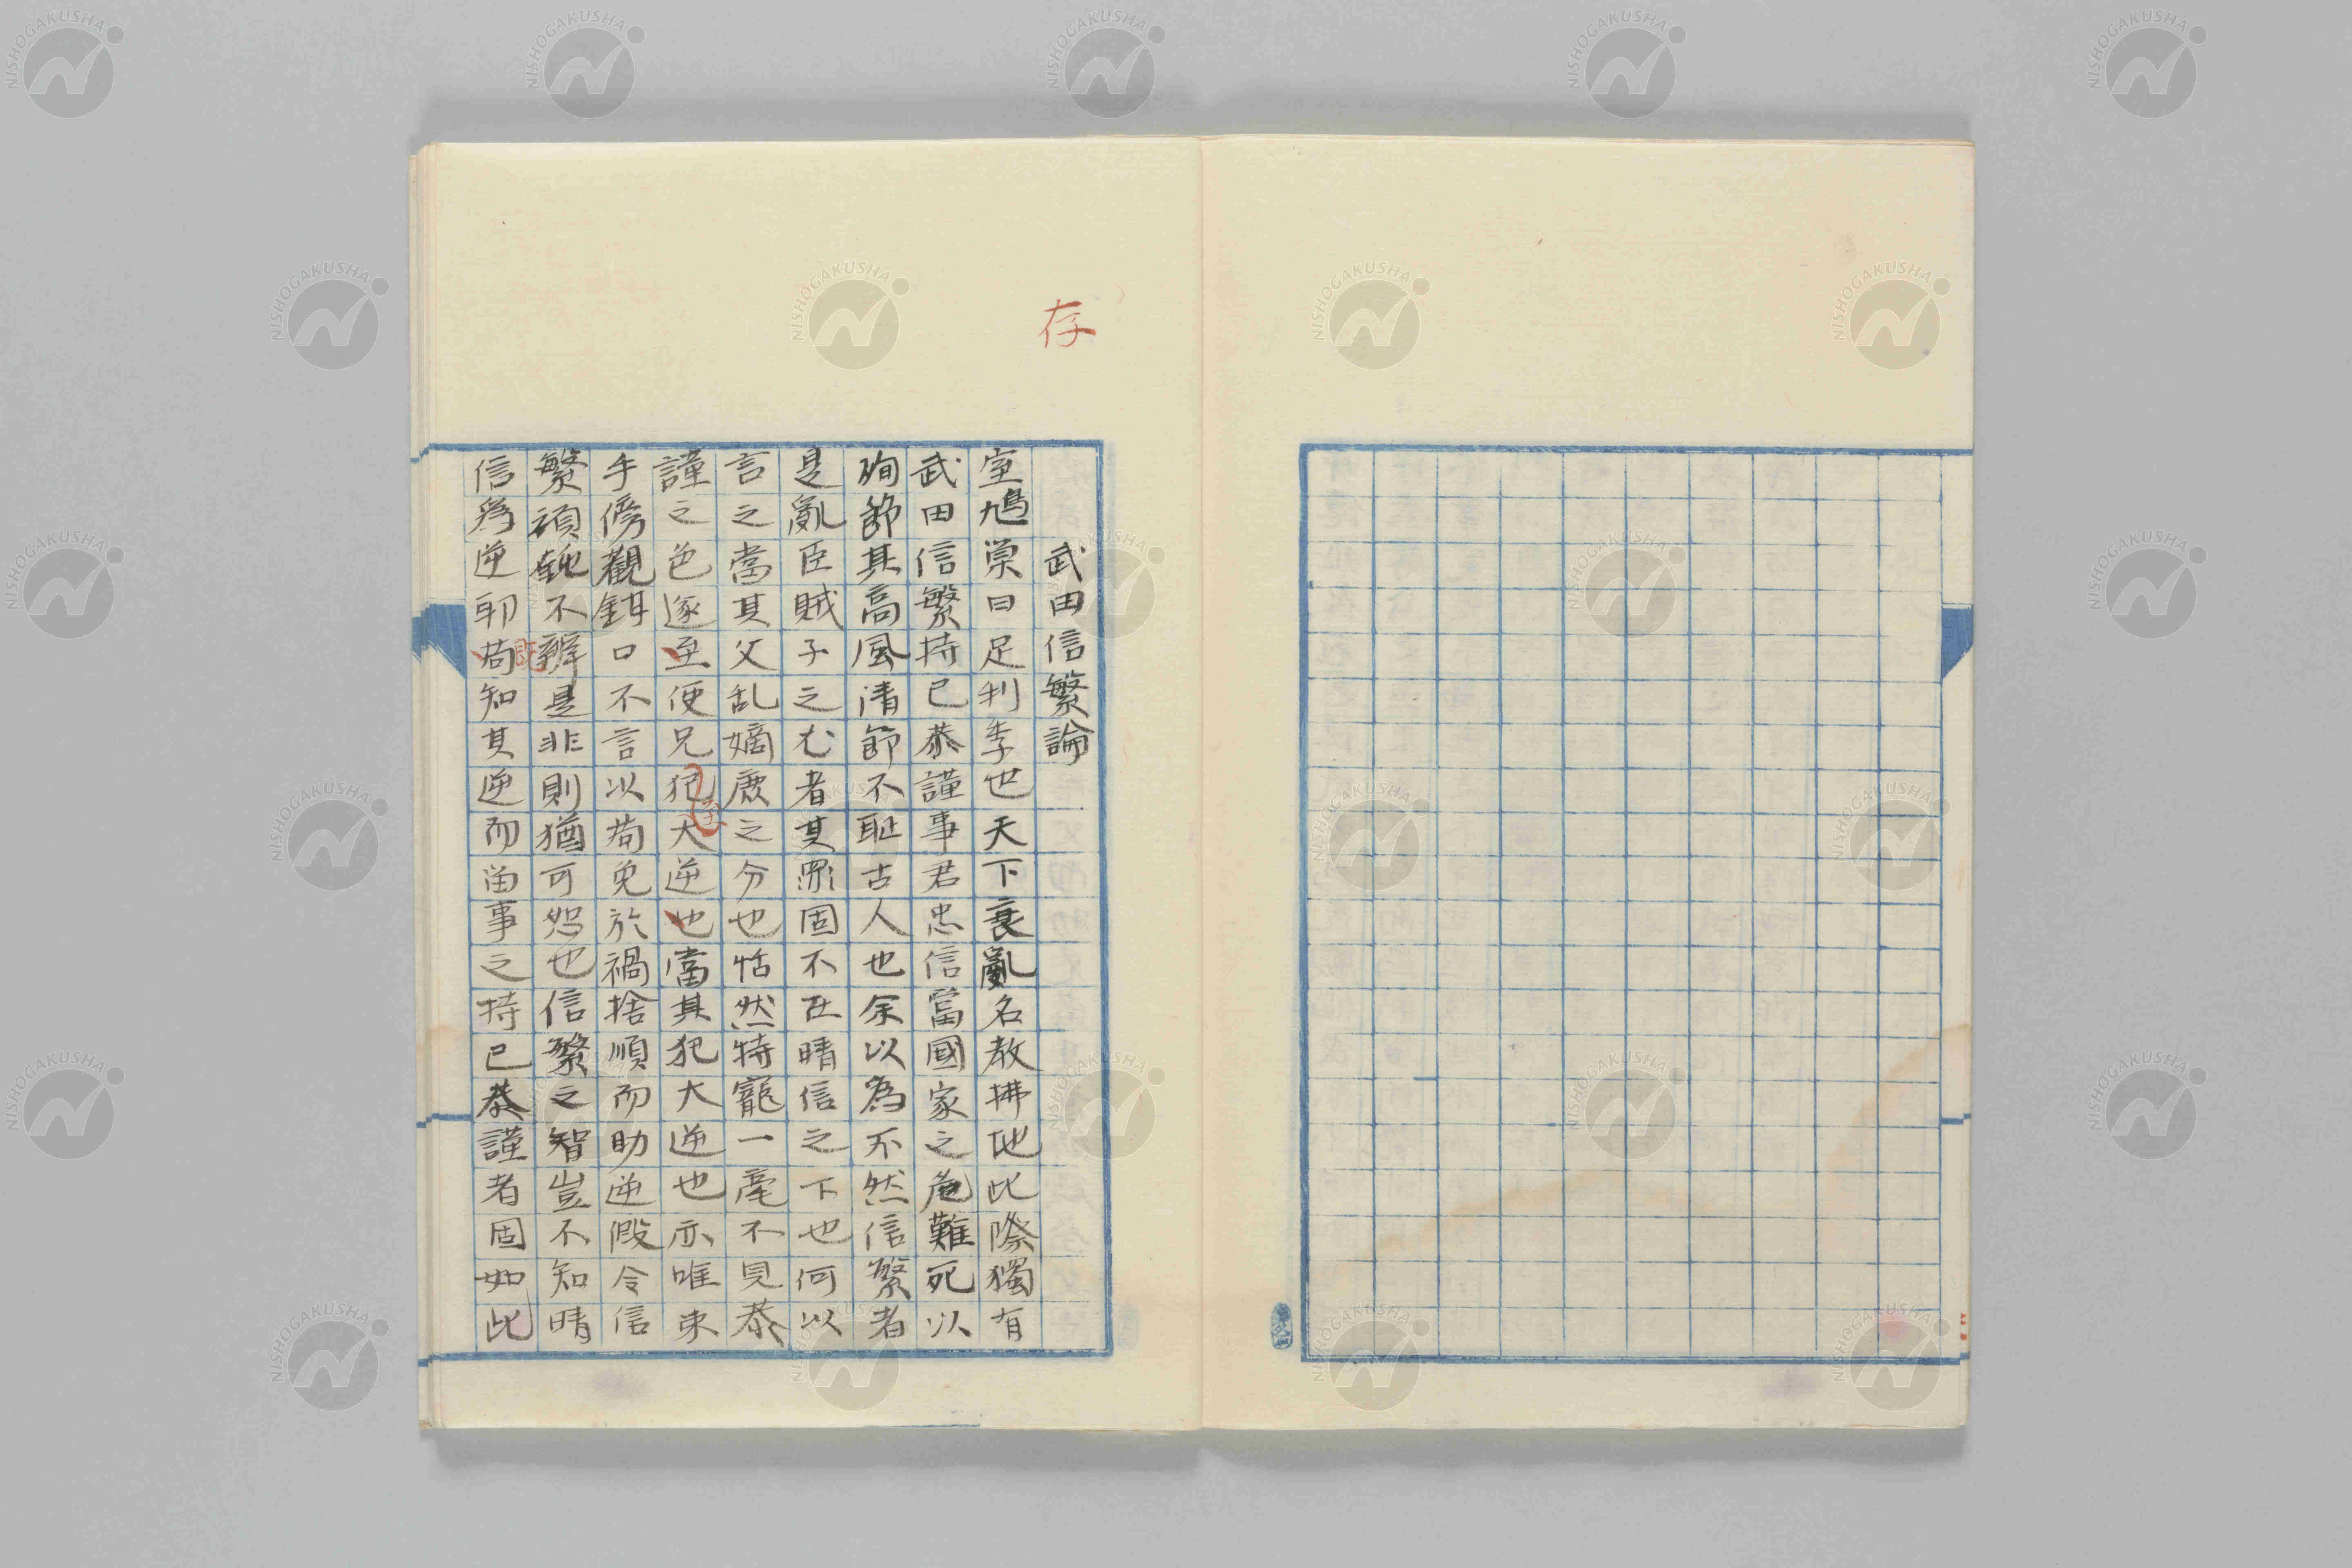 存
武田信繁論
室鳩巣曰足利季世天下衰亂名教拂地此際獨有
武田信繁持已恭謹事君忠信當國家之危難死以
殉節其高風清節不耻古人也余以為不然信繁者
是亂臣賊子之尤者其罪固不在晴信之下也何以
言之當其父乱嫡庶之分也恬然特寵一毫不見恭
謹之色逐至使兄犯大逆也當其犯大逆也亦唯束
至
手傍觀鉗口不言以苟免於禍捨順而助逆假令信
繁頑鈍不辨是非則猶可恕也信繁之智豈不知晴
既
信為逆耶苟知其逆而甾事之持已恭謹者固如此
NISHOGAKUSHA